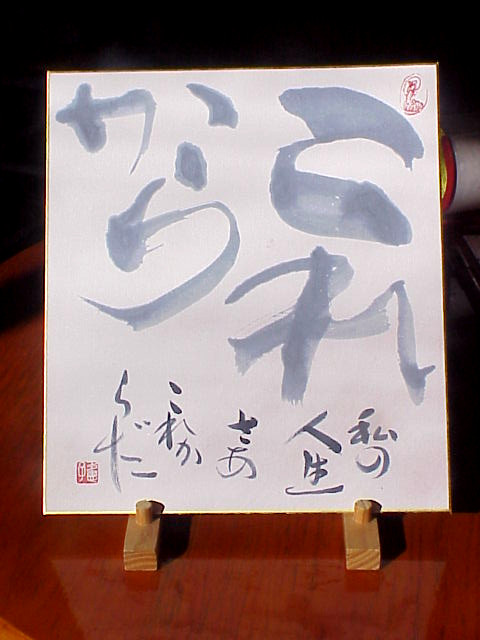 これ
から
私の
人生
さあ
これか
らだ